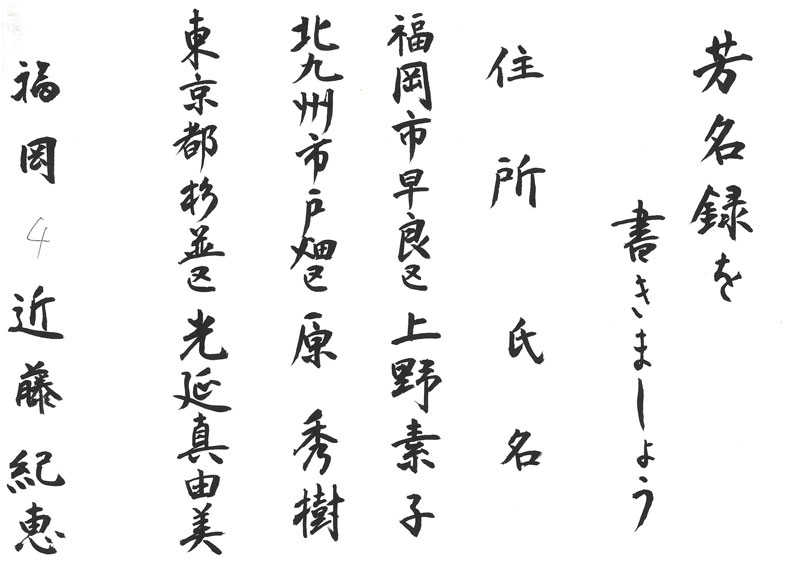 芳名録を
書きましょう
住所 氏名
福岡市早良区 上野素子
北九州市戸畑区 原秀樹
東京都杉並区 光延真由美
福岡 4 近藤紀恵